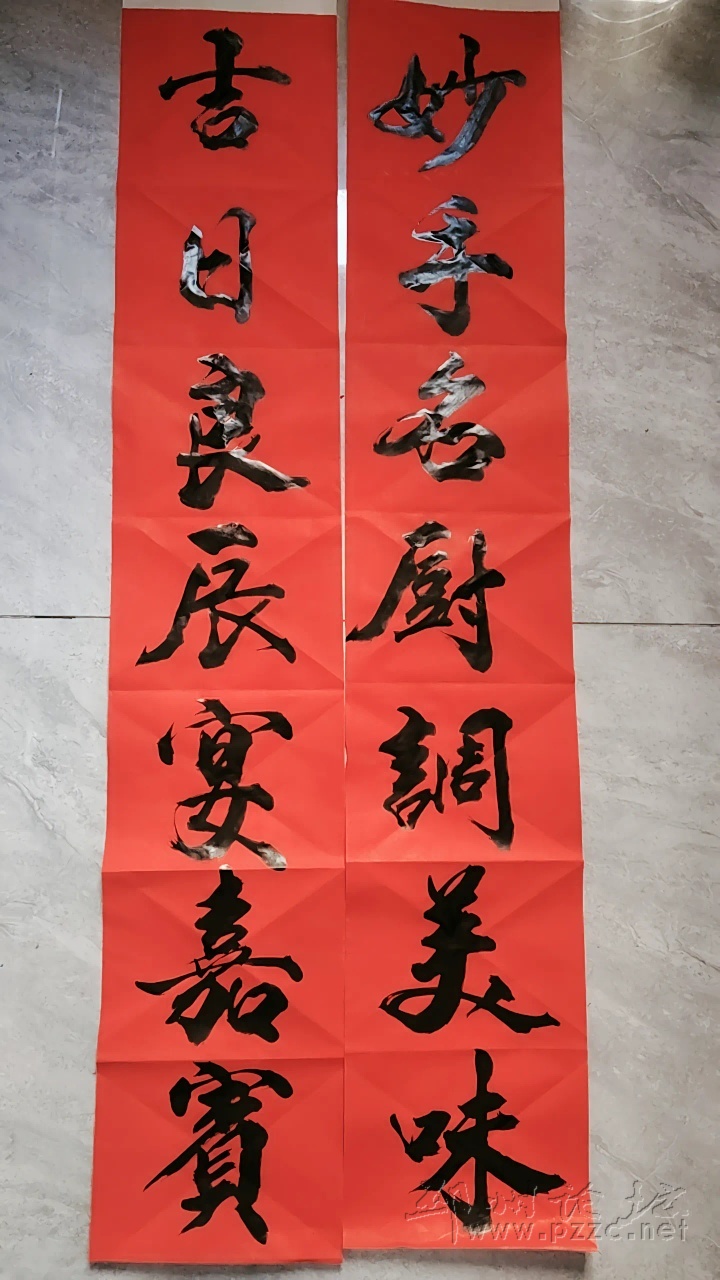 妙手名厨調美味
吉日良辰宴嘉賓
www.pzzc.net